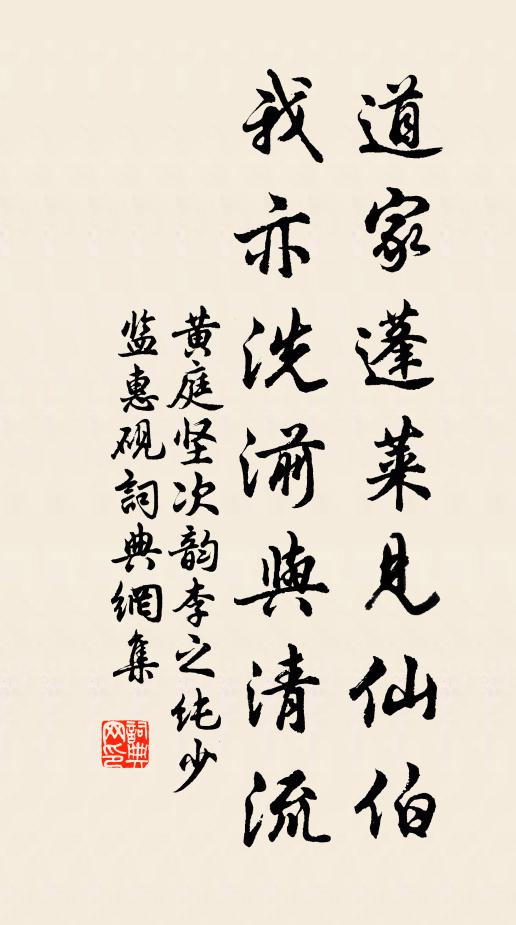 道家蓬萊見仙伯
我亦洗湔與清流
黄庭坚次韵李之纯少
监惠砚詞典網集
詞典网印